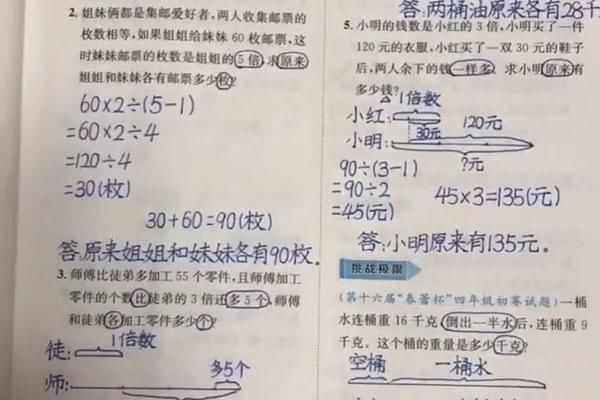 2. 姐妹俩都是集邮爱好者，两人收集邮票的
枚数相等，如果姐姐给妹妹 60 枚邮票，这
时妹妹邮票的枚数是姐姐的 5 倍，求原来
姐姐和妹妹各有邮票多少枚？
60×2÷(5-1)
=60×2÷4
=120÷4
=30(枚)
30+60=90(枚)
答：原来姐姐和妹妹各有90枚．
3. 师傅比徒弟多加工 55 个零件，且师傅加工
零件的个数比徒弟的 3 倍还多 5 个，师傅
和徒弟各加工零件多少个？
1倍数
徒：
多5个
师：
答：两桶油原来各有28千
5. 小明的钱数是小红的 3 倍，小明买了一件
120 元的衣服，小红买了一双 30 元的鞋子
后，两人余下的钱一样多，求小明原来有
多少钱？
1倍数
小红：
30元
120元
小明：
?元
90÷(3-1)
=90÷2
=45(元)
45×3=135(元)
答：小明原来有135元．
挑战极限
（第十六届“春蕾杯”四年级初赛试题）一桶
水连桶重 16 千克，倒出一半水后，连桶重 9
千克。这个桶的重量是多少千克？
空桶
一桶水